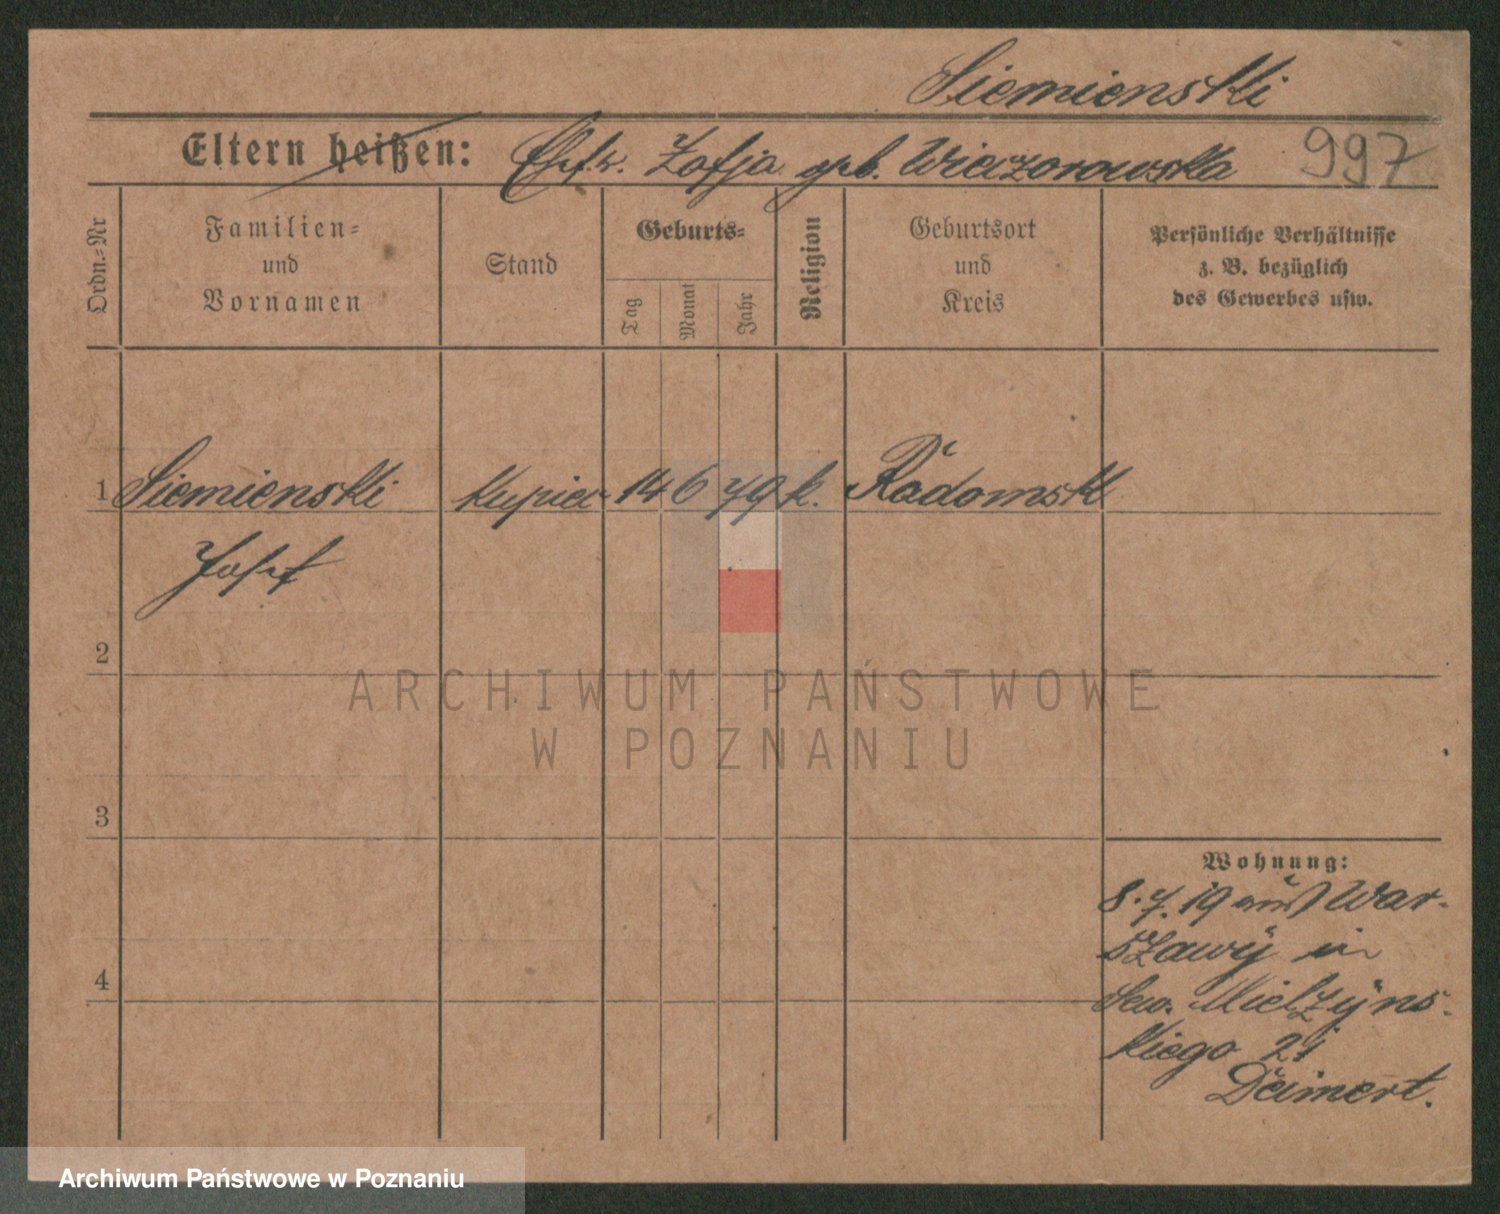 Siemienski
Eltern heißen: Ehefr. Zofja geb. Wiczorowska 997
Ordn.-Nr
Familien-
und
Vornamen
Stand
Geburts-
Tag
Monat
Jahr
Religion
Geburtsort
und
Kreis
Persönliche Verhältnisse
z. B. bezüglich
des Gewerbes usw.
1 Siemienski kupiec 14 6 79 k. Radomsk
Josef
2
ARCHIWUM PAŃSTWOWE
W POZNANIU
3
Wohnung:
8.7.19 aus War-
szawy in
Sew. Mielżyns-
kiego 21
4
Deimert.
Archiwum Państwowe w Poznaniu